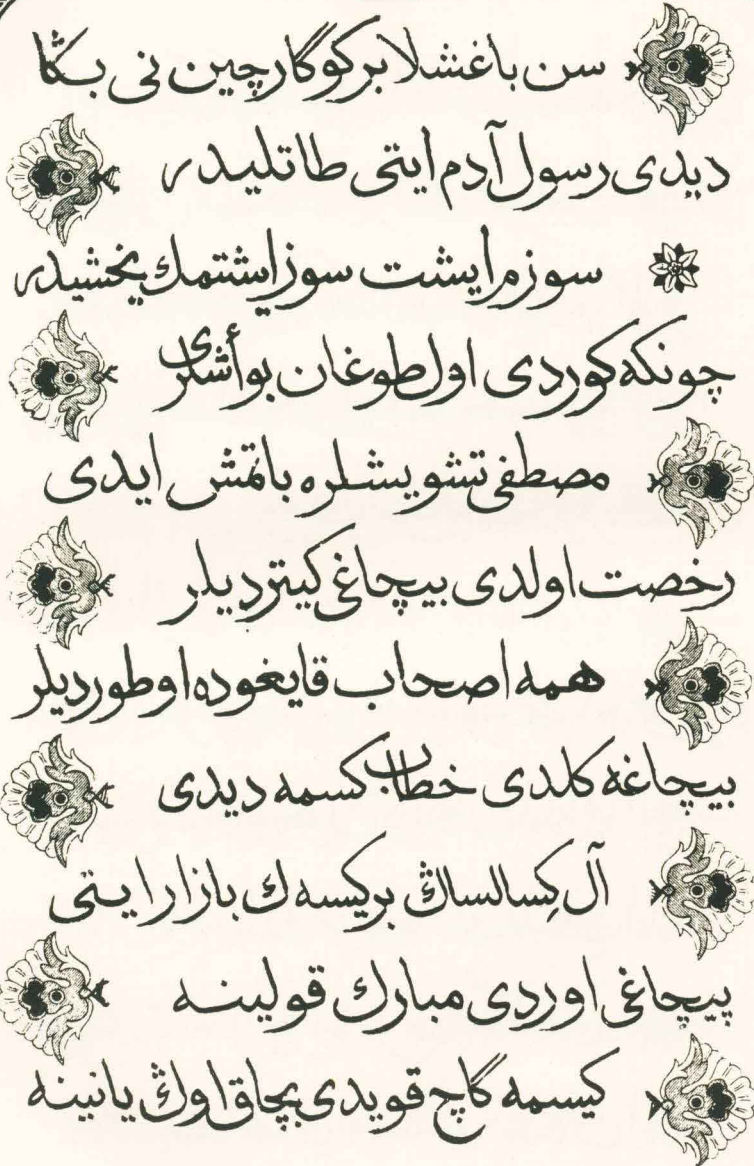 سن باغشلا بر كوگارچين نی بڭا
ديدی رسول آدم ايتی طاتليدر
سوزم ايشت سوز ايشتمك يخشيدر
چونكه كوردی اول طوغان بو أشلری
مصطفی تشويشلره باتمش ايدی
رخصت اولدی بيچاغی كيترديلر
همه اصحاب قايغوده اوطورديلر
بيچاغه كلدی خطاب كسمه ديدی
آل كِسالساڭ بر كيسه ك بازار ايتی
پيچاغی اوردی مبارك قولينه
كيسمه گاچ قويدی بچاق اوڭ يانينه